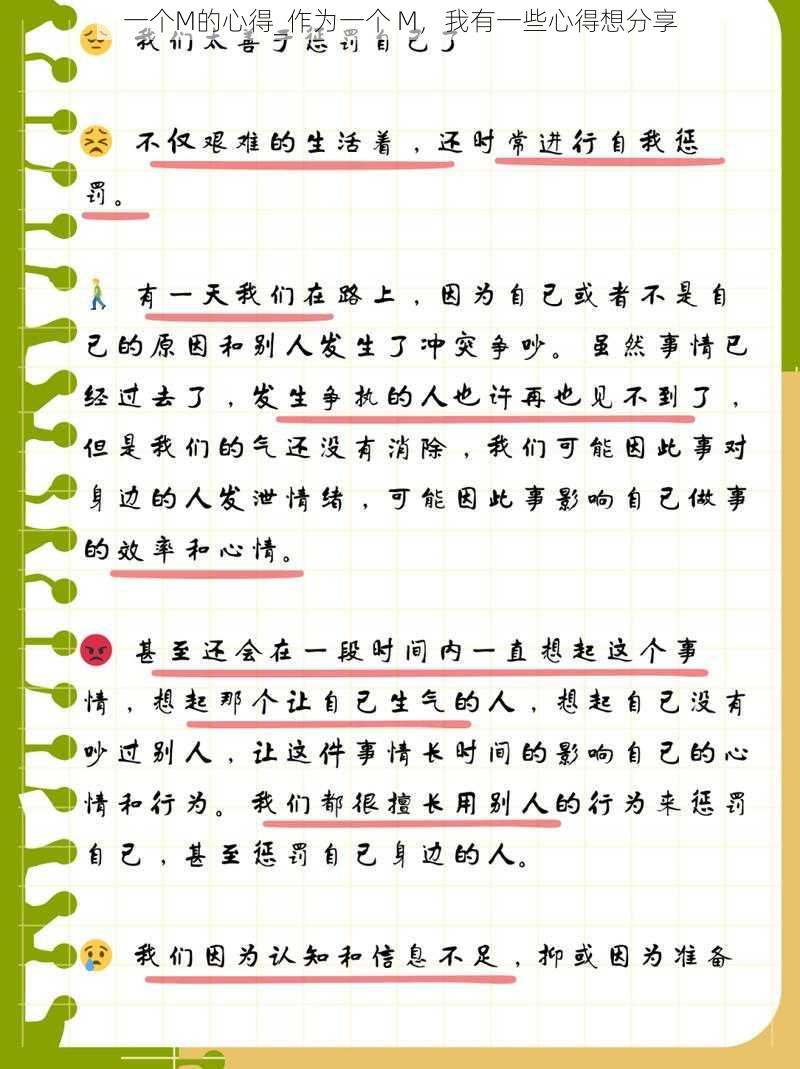 一个M的心得_作为一个 M，我有一些心得想分享
我们太善于惩罚自己了
不仅艰难的生活着，还时常进行自我惩
罚。
有一天我们在路上，因为自己或者不是自
己的原因和别人发生了冲突争吵。虽然事情已
经过去了，发生争执的人也许再也见不到了，
但是我们的气还没有消除，我们可能因此事对
身边的人发泄情绪，可能因此事影响自己做事
的效率和心情。
甚至还会在一段时间内一直想起这个事
情，想起那个让自己生气的人，想起自己没有
吵过别人，让这件事情长时间的影响自己的心
情和行为。我们都很擅长用别人的行为来惩罚
自己，甚至惩罚自己身边的人。
我们因为认知和信息不足，抑或因为准备